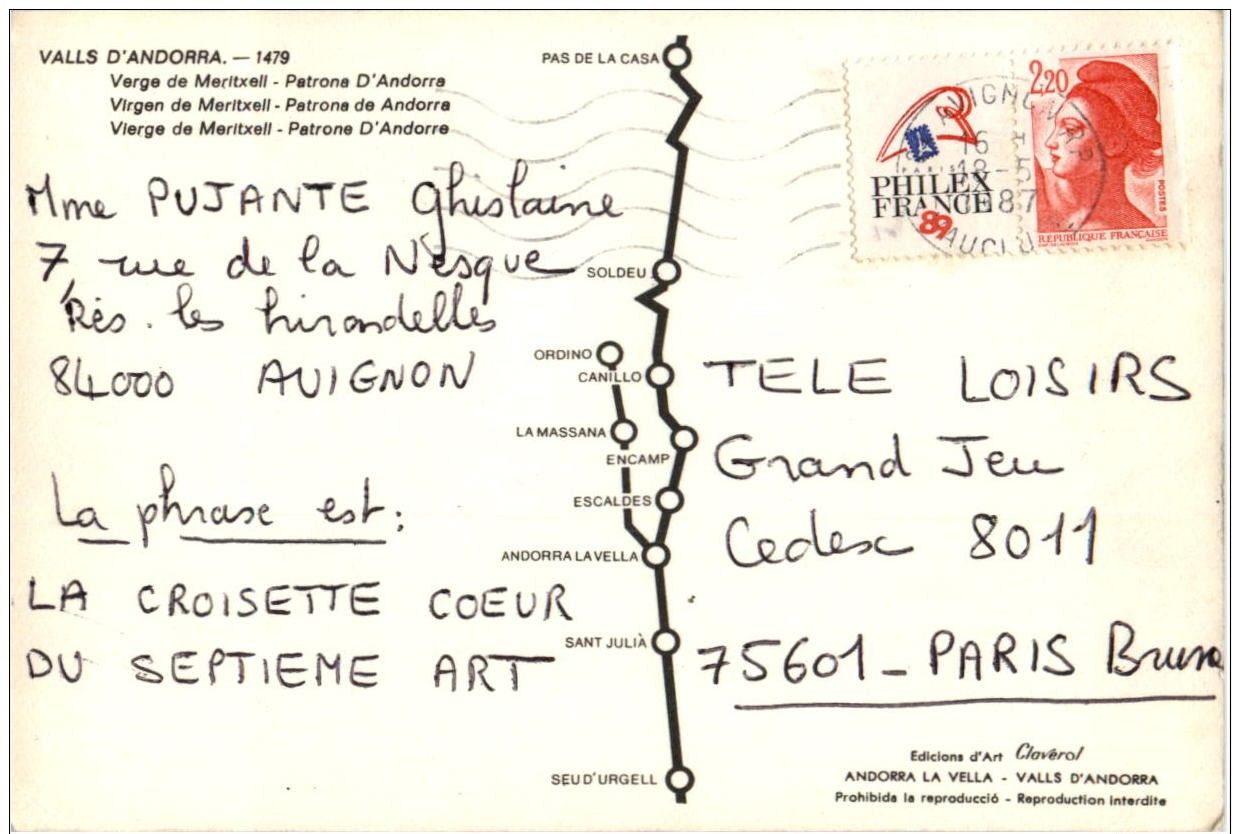 VALLS D'ANDORRA. — 1479
Verge de Meritxell - Patrona D'Andorra
Virgen de Meritxell - Patrona de Andorra
Vierge de Meritxell - Patrone D'Andorre
Mme PUJANTE Ghislaine
7, rue de la Nesque
Rés. les hirondelles
84000 AVIGNON
La phrase est:
LA CROISETTE COEUR
DU SEPTIEME ART
PAS DE LA CASA
SOLDEU
ORDINO
CANILLO
LA MASSANA
ENCAMP
ESCALDES
ANDORRA LA VELLA
SANT JULIÀ
SEU D'URGELL
PARIS
PHILEX
FRANCE
89
2,20
POSTES
REPUBLIQUE FRANÇAISE
AVIGNON R.P.
16
18-5
87
VAUCLUSE
TELE LOISIRS
Grand Jeu
Cedex 8011
75601 - PARIS Brune
Edicions d'Art Claverol
ANDORRA LA VELLA - VALLS D'ANDORRA
Prohibida la reproducció - Reproduction interdite